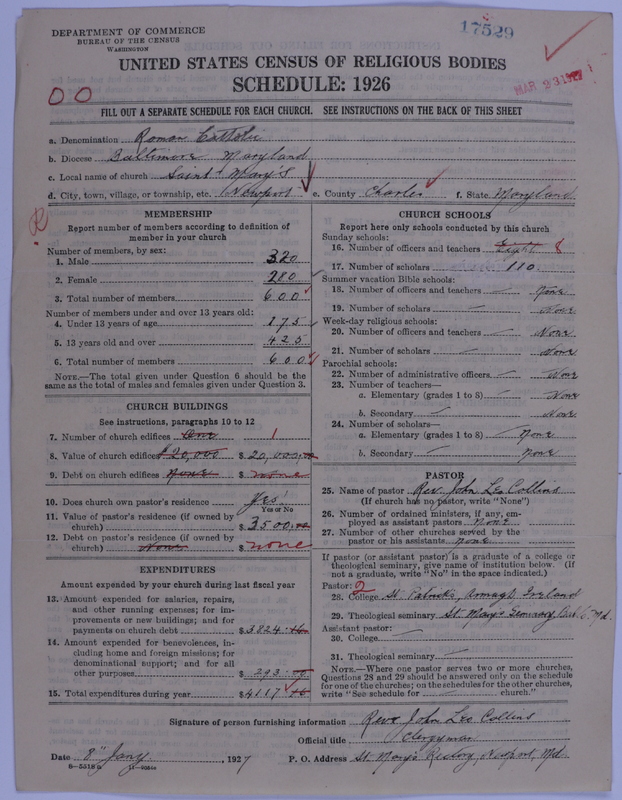 DEPARTMENT OF COMMERCE
BUREAU OF THE CENSUS
WASHINGTON
17529
UNITED STATES CENSUS OF RELIGIOUS BODIES
SCHEDULE: 1926
MAR 23 1927
00
FILL OUT A SEPARATE SCHEDULE FOR EACH CHURCH. SEE INSTRUCTIONS ON THE BACK OF THIS SHEET
a. Denomination Roman Catholic
b. Diocese Baltimore Maryland
c. Local name of church Saint Mary's
d. City, town, village, or township, etc. Newport e. County Charles f. State Maryland
MEMBERSHIP
Report number of members according to definition of
member in your church
Number of members, by sex:
1. Male 320
2. Female 280
3. Total number of members 600
Number of members under and over 13 years old:
4. Under 13 years of age 175
5. 13 years old and over 425
6. Total number of members 600
NOTE.—The total given under Question 6 should be the
same as the total of males and females given under Question 3.
CHURCH BUILDINGS
See instructions, paragraphs 10 to 12
7. Number of church edifices One 1
8. Value of church edifices $20,000 $20,000.00
9. Debt on church edifices None $ none
10. Does church own pastor's residence Yes!
Yes or No
11. Value of pastor's residence (if owned by
church) $3500.00
12. Debt on pastor's residence (if owned by
church) None $ none
EXPENDITURES
Amount expended by your church during last fiscal year
13. Amount expended for salaries, repairs,
and other running expenses; for im-
provements or new buildings; and for
payments on church debt $3824
14. Amount expended for benevolences, in-
cluding home and foreign missions; for
denominational support; and for all
other purposes $ 293
15. Total expenditures during year $4117
CHURCH SCHOOLS
Report here only schools conducted by this church
Sunday schools:
16. Number of officers and teachers Eight 8
17. Number of scholars 110
Summer vacation Bible schools:
18. Number of officers and teachers None
19. Number of scholars None
Week-day religious schools:
20. Number of officers and teachers None
21. Number of scholars None
Parochial schools:
22. Number of administrative officers None
23. Number of teachers—
a. Elementary (grades 1 to 8) None
b. Secondary None
24. Number of scholars—
a. Elementary (grades 1 to 8) None
b. Secondary None
PASTOR
25. Name of pastor Rev. John Leo Collins
(If church has no pastor, write "None")
26. Number of ordained ministers, if any, em-
ployed as assistant pastors None
27. Number of other churches served by the
pastor or his assistants None
If pastor (or assistant pastor) is a graduate of a college or
theological seminary, give name of institution below. (If
not a graduate, write "No" in the space indicated.)
Pastor: 2
28. College St. Patrick's, Armagh Ireland
29. Theological seminary St. Mary's Seminary Balto. Md.
Assistant pastor:
30. College
31. Theological seminary
NOTE.—Where one pastor serves two or more churches,
Questions 28 and 29 should be answered only on the schedule
for one of the churches; on the schedules for the other churches,
write "See schedule for church."
Signature of person furnishing information Rev. John Leo Collins
Official title Clergyman
Date 8" Jany, 1927 P. O. Address St. Mary's Rectory, Newport, Md.